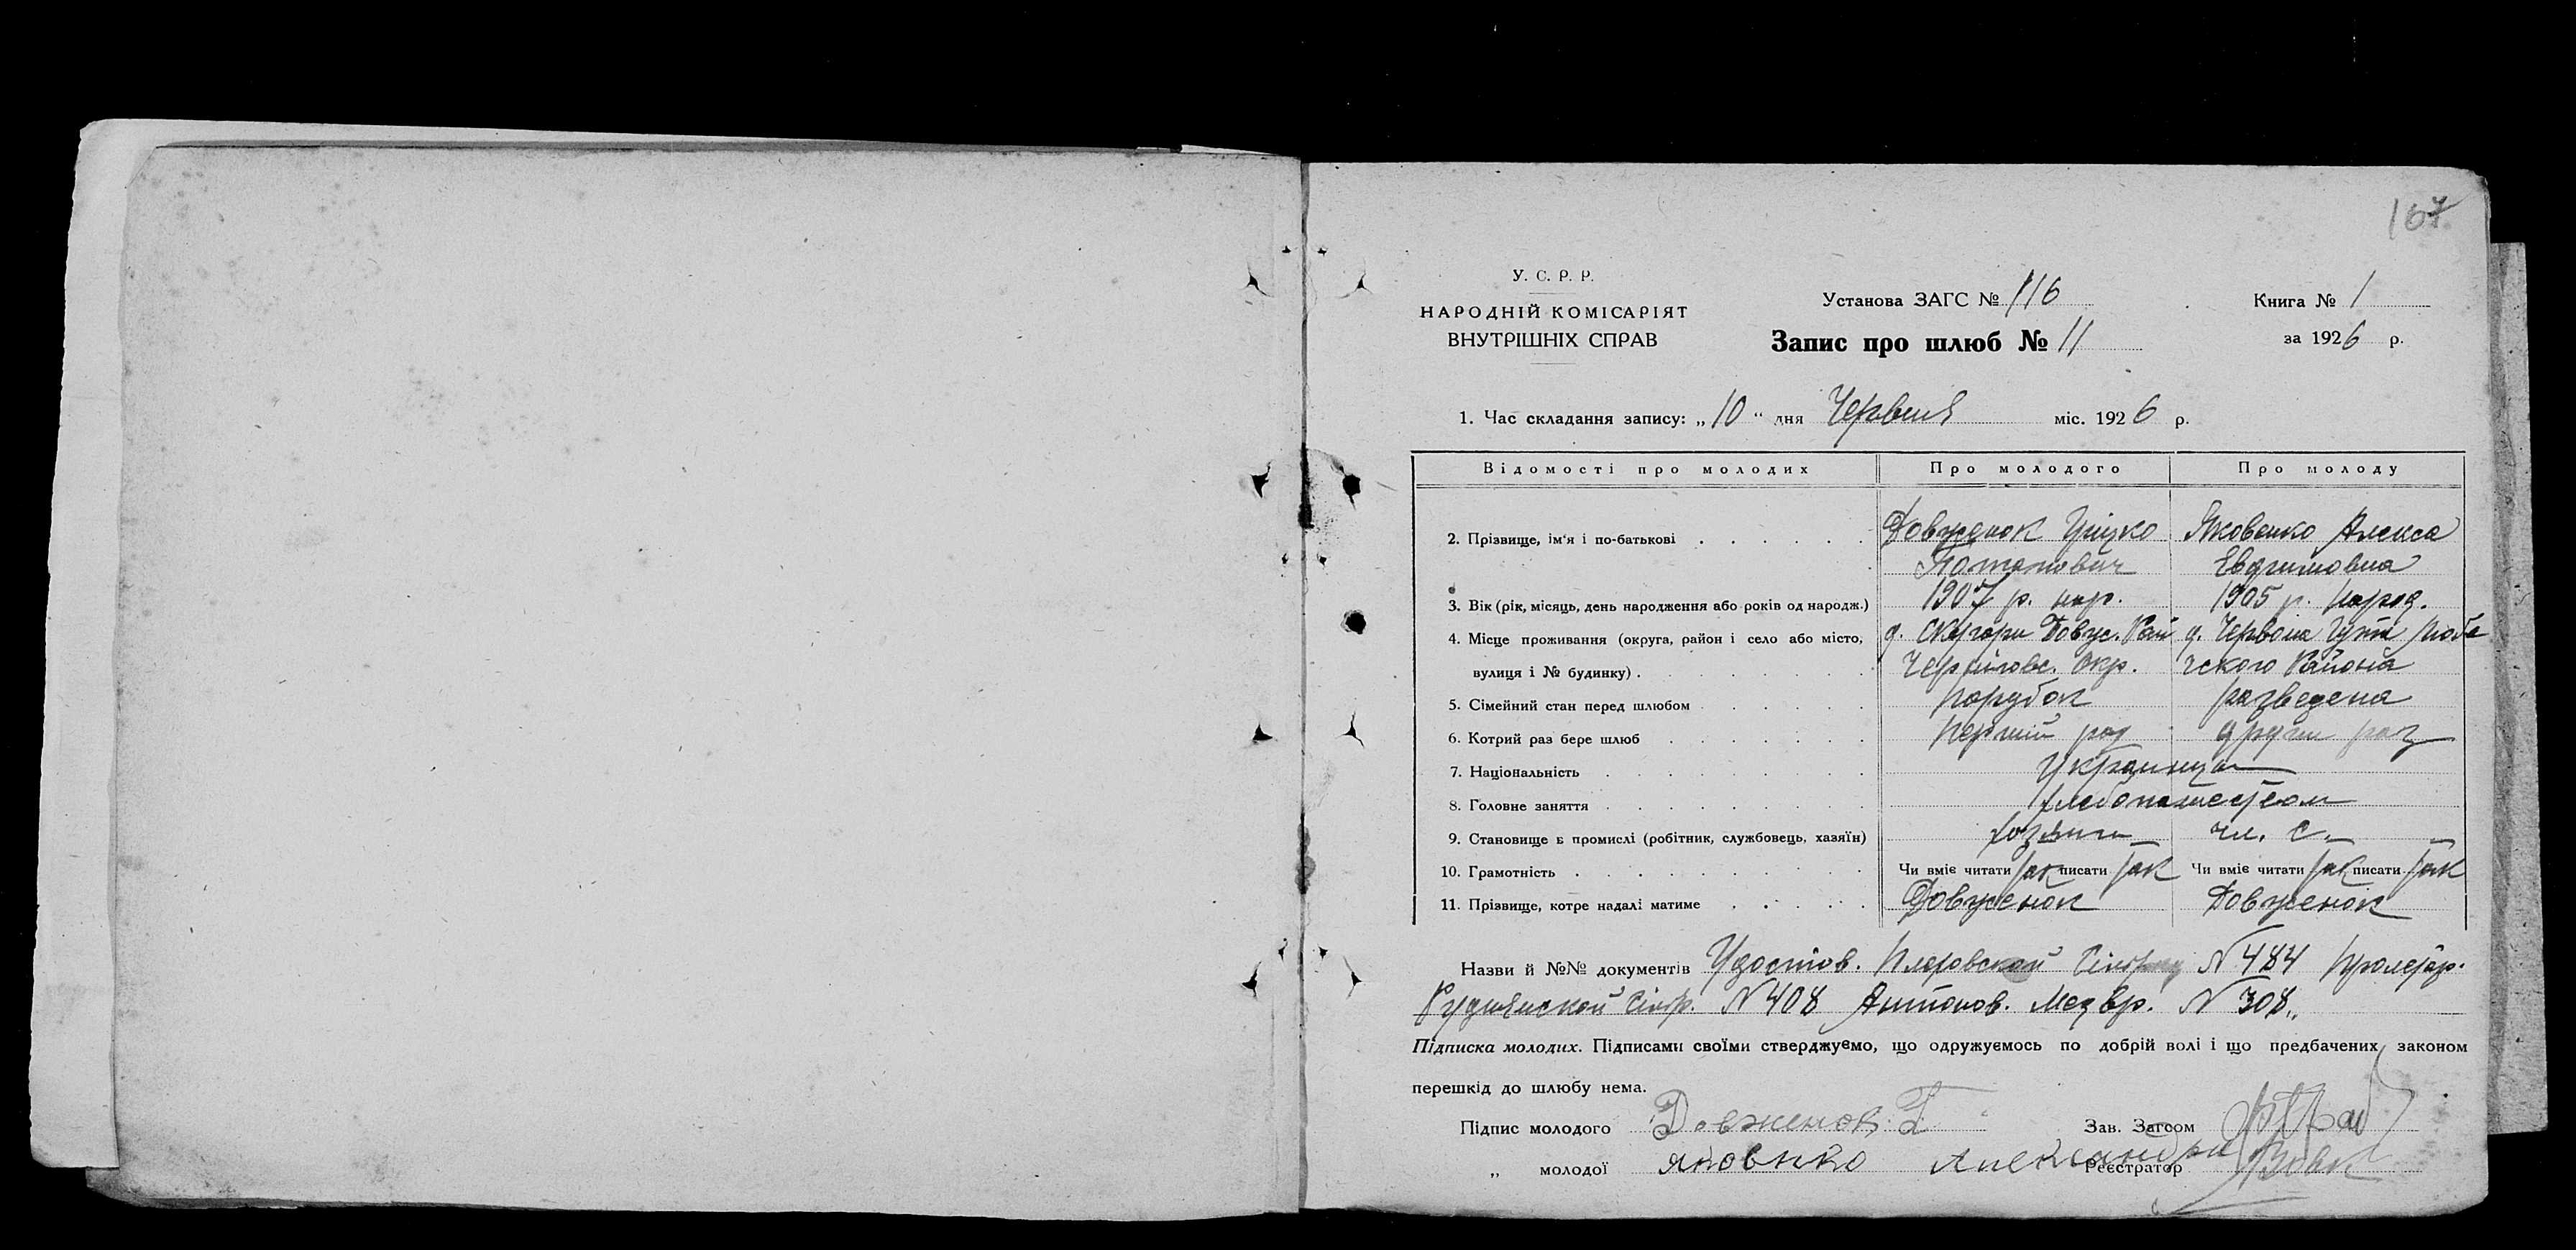 167
У. С. Р. Р.
НАРОДНІЙ КОМІСАРІЯТ
ВНУТРІШНІХ СПРАВ
Установа ЗАГС № 116
Запис про шлюб № 11
Книга № 1
за 1926 р.
1. Час складання запису: „10“ дня Червня міс. 1926 р.
Відомості про молодих Про молодого Про молоду
2. Прізвище, ім'я і по-батькові Довженок Грицко Яковенко Алекса
Потапович Евфимовна
3. Вік (рік, місяць, день народження або років од народж.) 1907 р. нар. 1905 р. народ.
4. Місце проживання (округа, район і село або місто, д. Довж. Рай д. Червона Гута Любе
вулиця і № будинку) Черніговс. Окр. чского Района
5. Сімейний стан перед шлюбом парубок разведена
6. Котрий раз бере шлюб Перший раз други раз
7. Національність Украинци
8. Головне заняття
9. Становище в промислі (робітник, службовець, хазяїн) чл. с.
10. Грамотність Чи вміє читати так писати так Чи вміє читати так писати так
11. Прізвище, котре надалі матиме Довженок Довженок
Назви й №№ документів Удостов. N 484
N 408 Антонов. N 308
Підписка молодих. Підписами своїми стверджуємо, що одружуємось по добрій волі і що предбачених законом
перешкід до шлюбу нема.
Підпис молодого Довженок Г Зав. Загсом
„ молодої Яковнко Александра Реєстратор Вовк